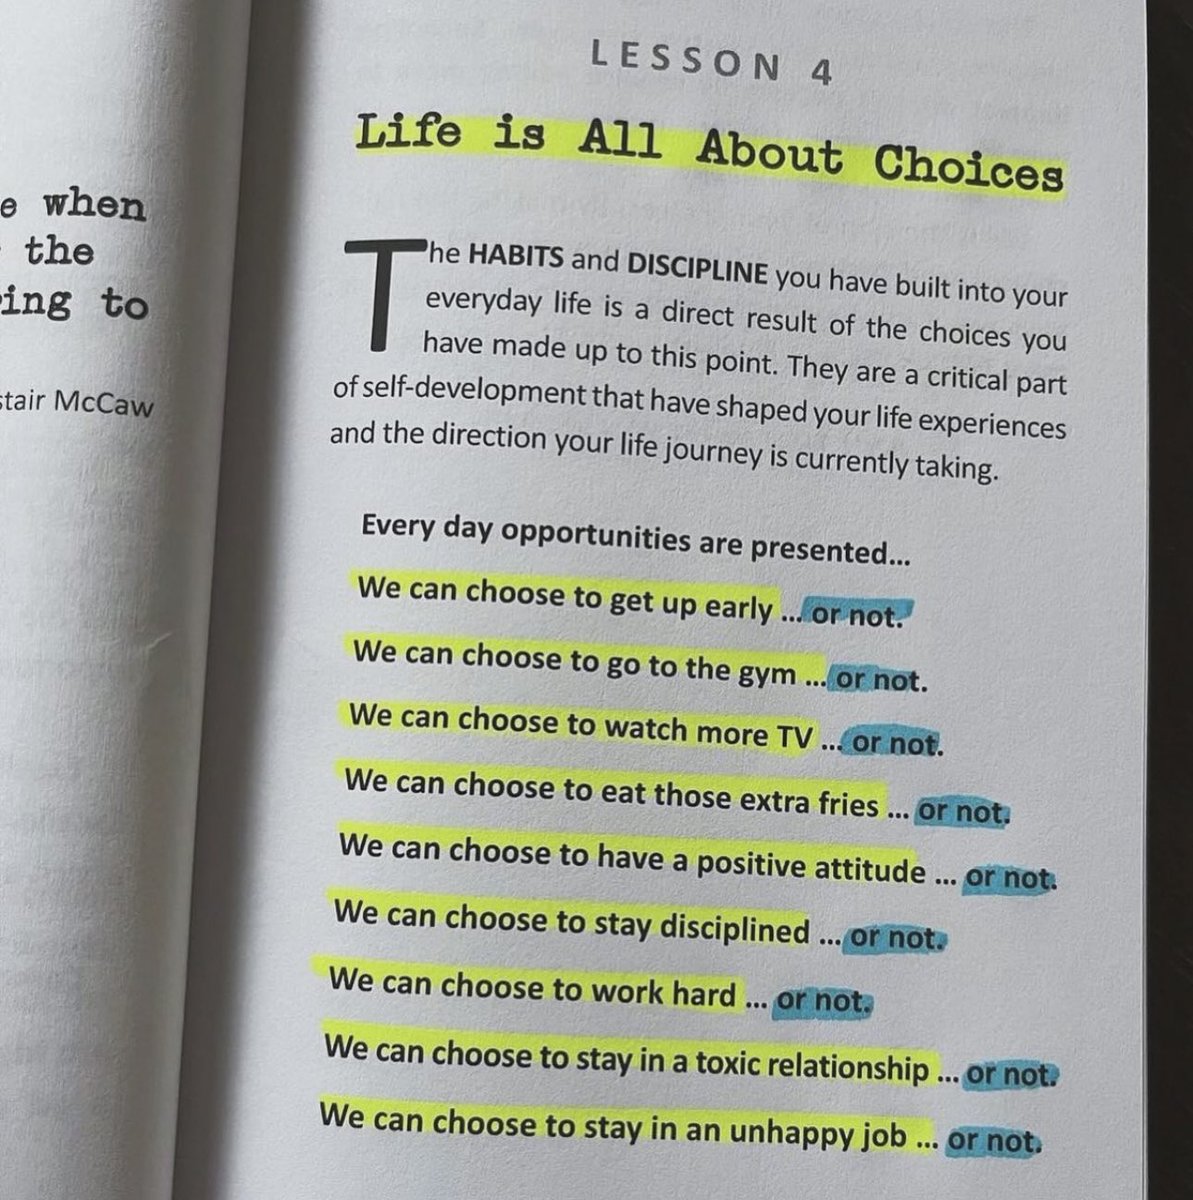 when
the
ing to
McCaw
LESSON 4
Life is All About Choices
The HABITS and DISCIPLINE you have built into your
everyday life is a direct result of the choices you
have made up to this point. They are a critical part
of self-development that have shaped your life experiences
and the direction your life journey is currently taking.
Every day opportunities are presented...
We can choose to get up early ... or not.
We can choose to go to the gym ... or not.
We can choose to watch more TV ... or not.
We can choose to eat those extra fries ... or not.
We can choose to have a positive attitude ... or not.
We can choose to stay disciplined ... or not.
We can choose to work hard ... or not.
We can choose to stay in a toxic relationship ... or not.
We can choose to stay in an unhappy job ... or not.